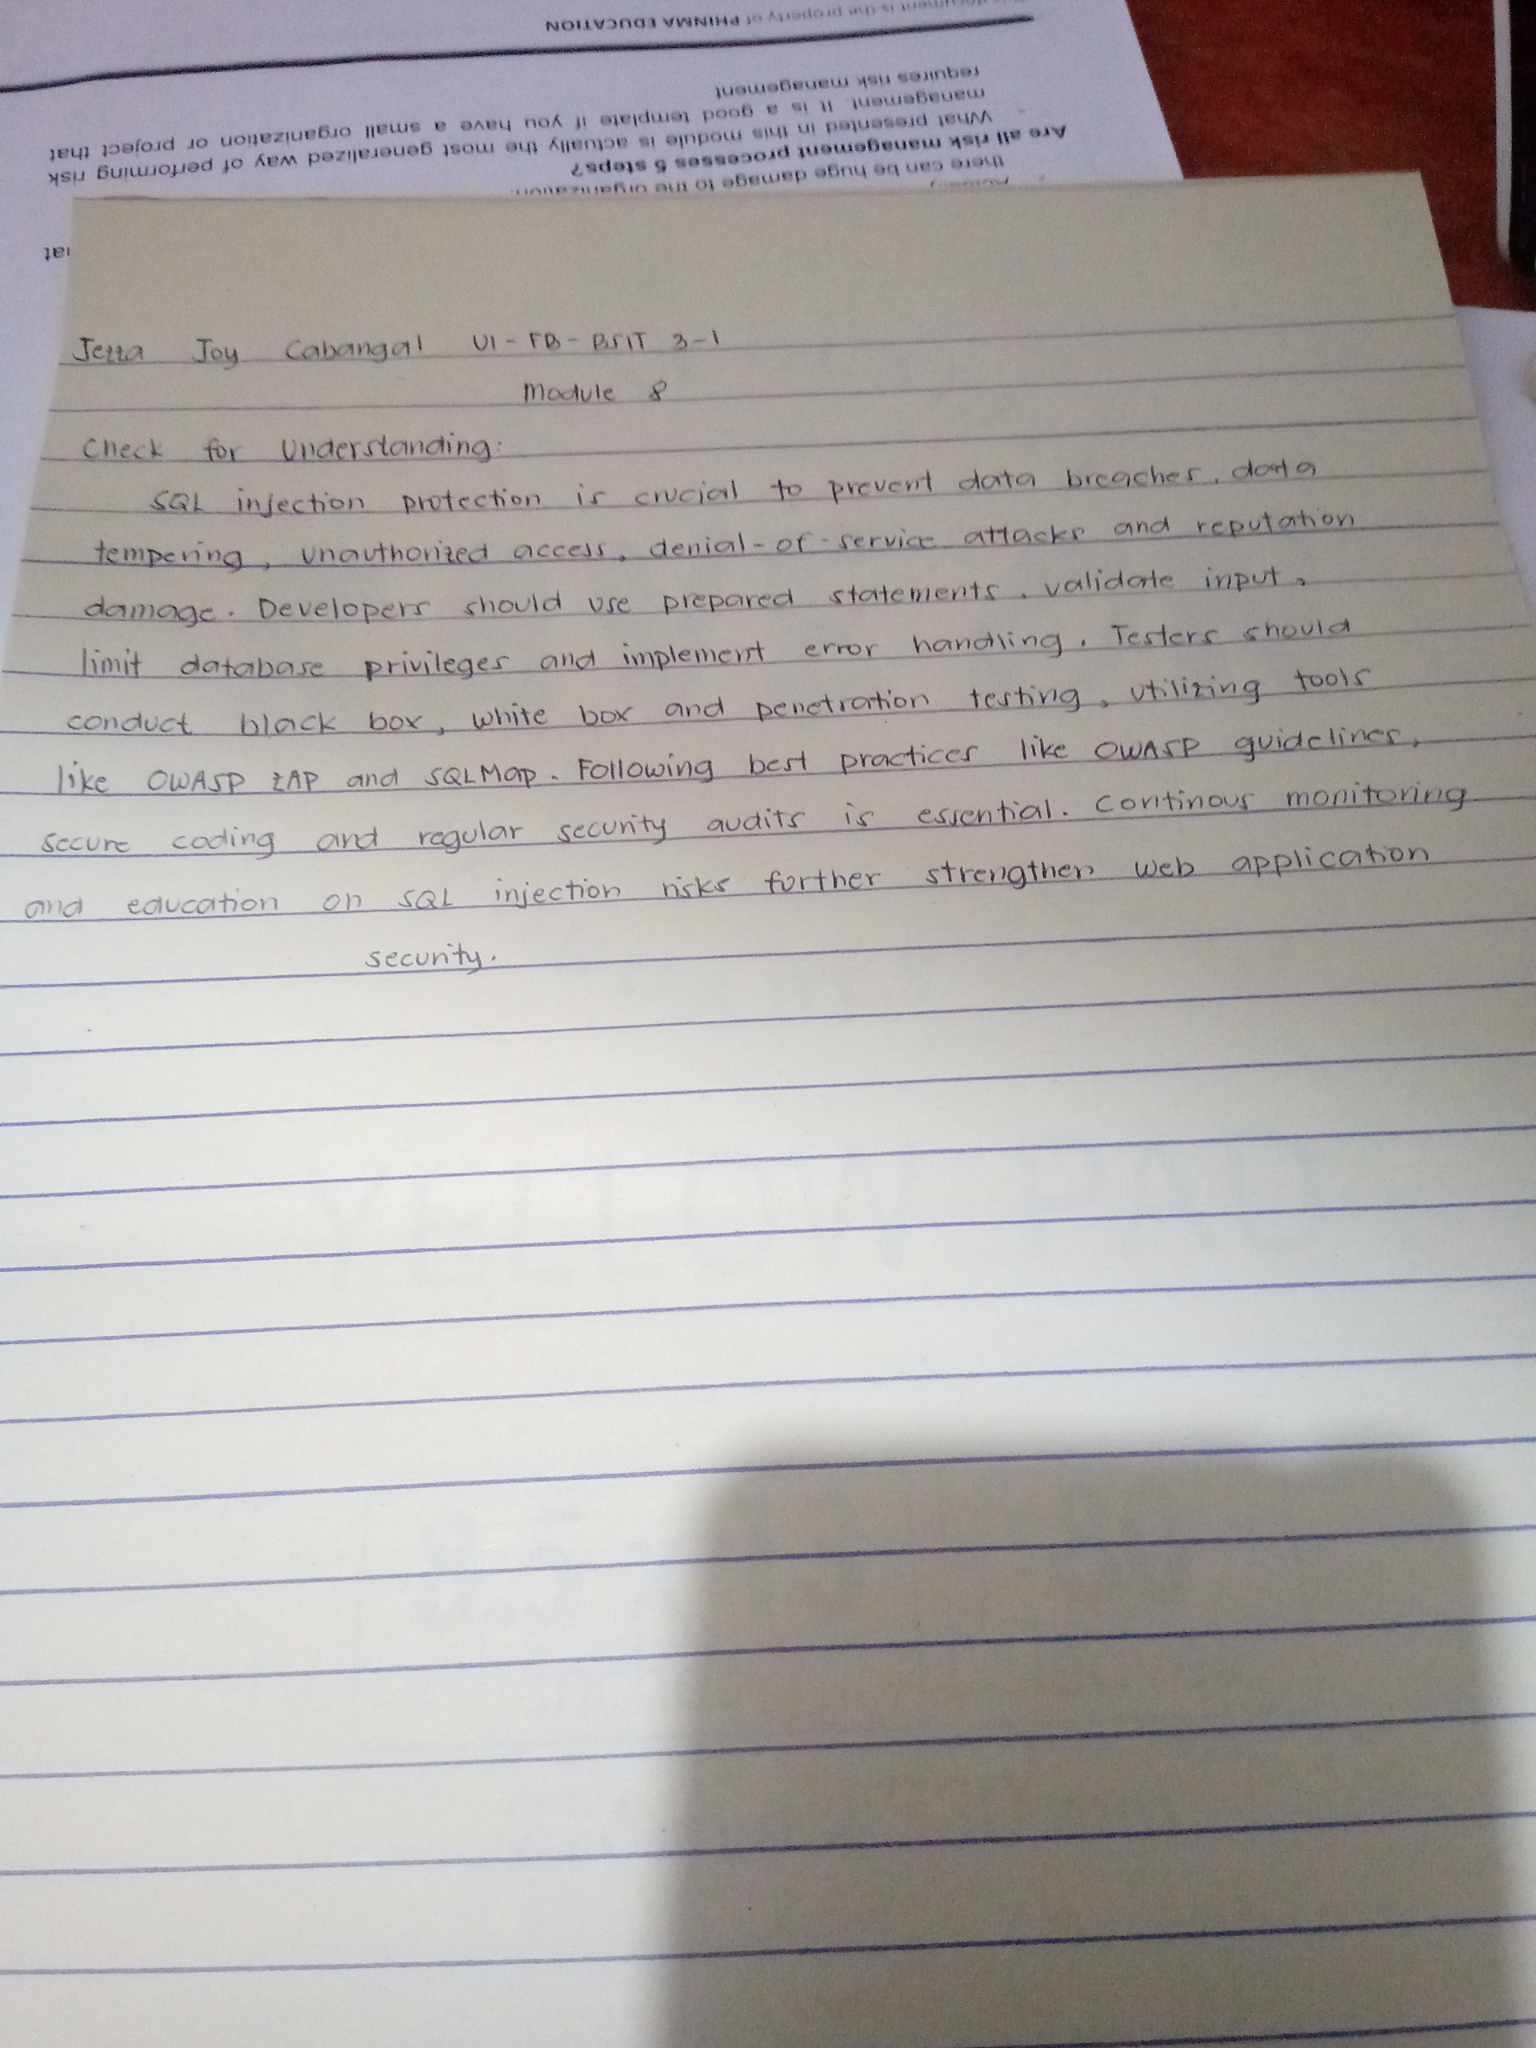 document is the property of PHINMA EDUCATION
requires risk management
management. It is a good template if you have a small organization or project that
What presented in this module is actually the most generalized way of performing risk
Are all risk management processes 5 steps?
there can be huge damage to the organization.
Jezza Joy Cabangal UI-FB-BSIT 3-1
Module 8
Check for Understanding:
SQL injection protection is crucial to prevent data breaches, data
tempering, unauthorized access, denial-of-service attacks and reputation
damage. Developers should use prepared statements, validate input,
limit database privileges and implement error handling. Testers should
conduct black box, white box and penetration testing, utilizing tools
like OWASP ZAP and SQLMap. Following best practices like OWASP guidelines,
secure coding and regular security audits is essential. Continous monitoring
and education on SQL injection risks further strengthen web application
security.